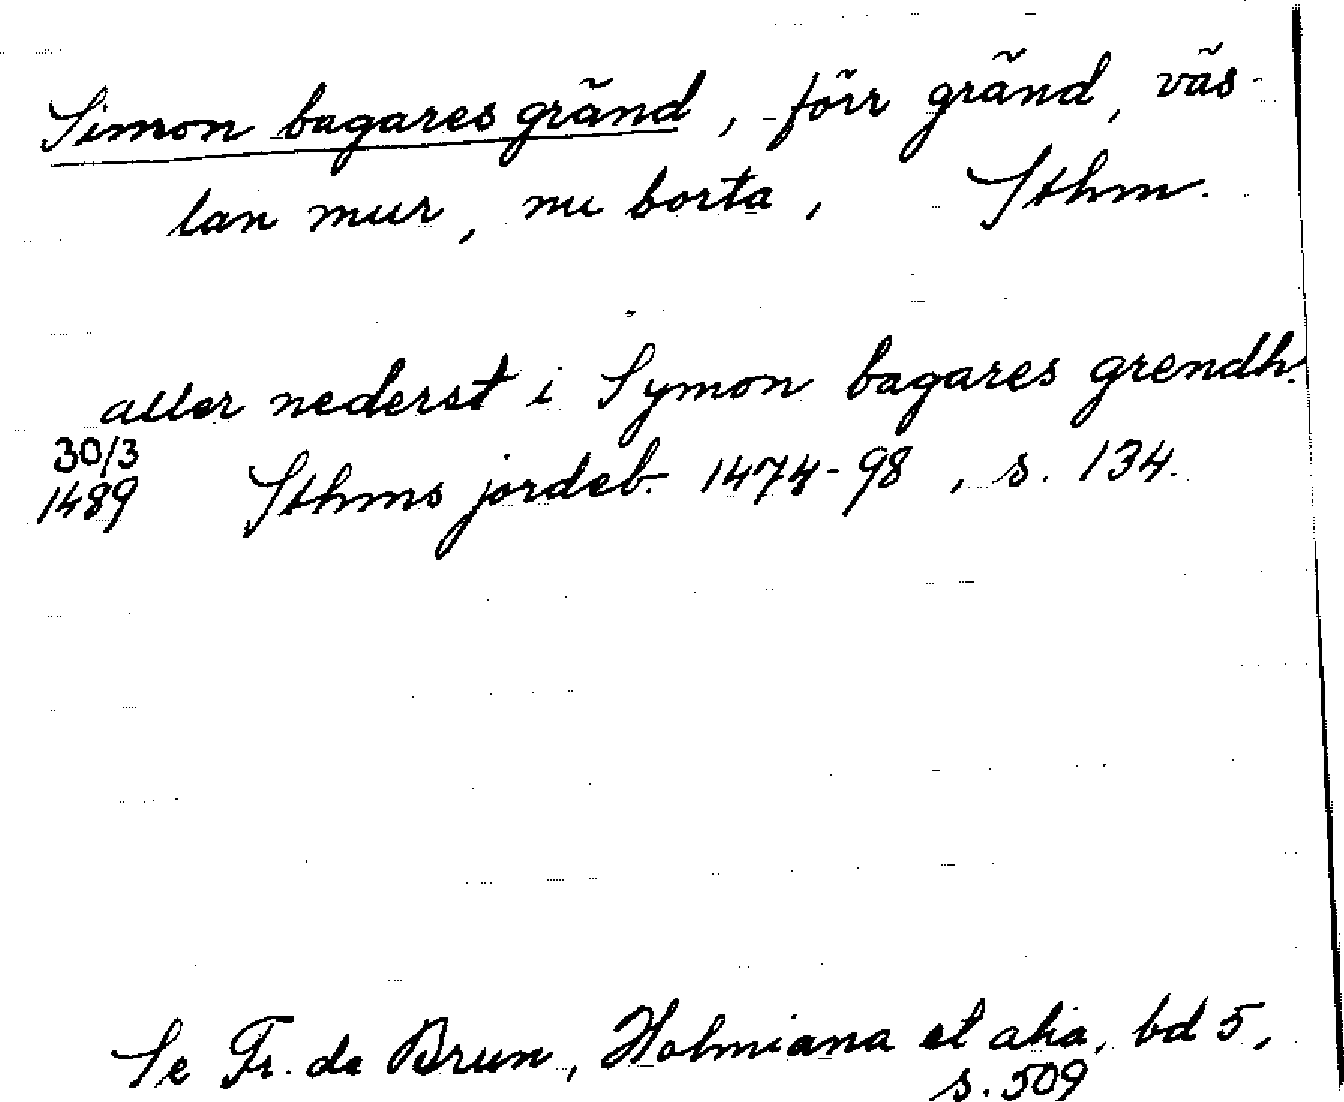 Simon bagares gränd, förr gränd, väs-
tan mur, nu borta, Sthm.
aller nederst i Symon bagares grendh.
30/3
1489 Sthms jordeb. 1474-98, s. 134.
Se Fr. de Brun, Holmiana et alia, bd 5,
s. 509